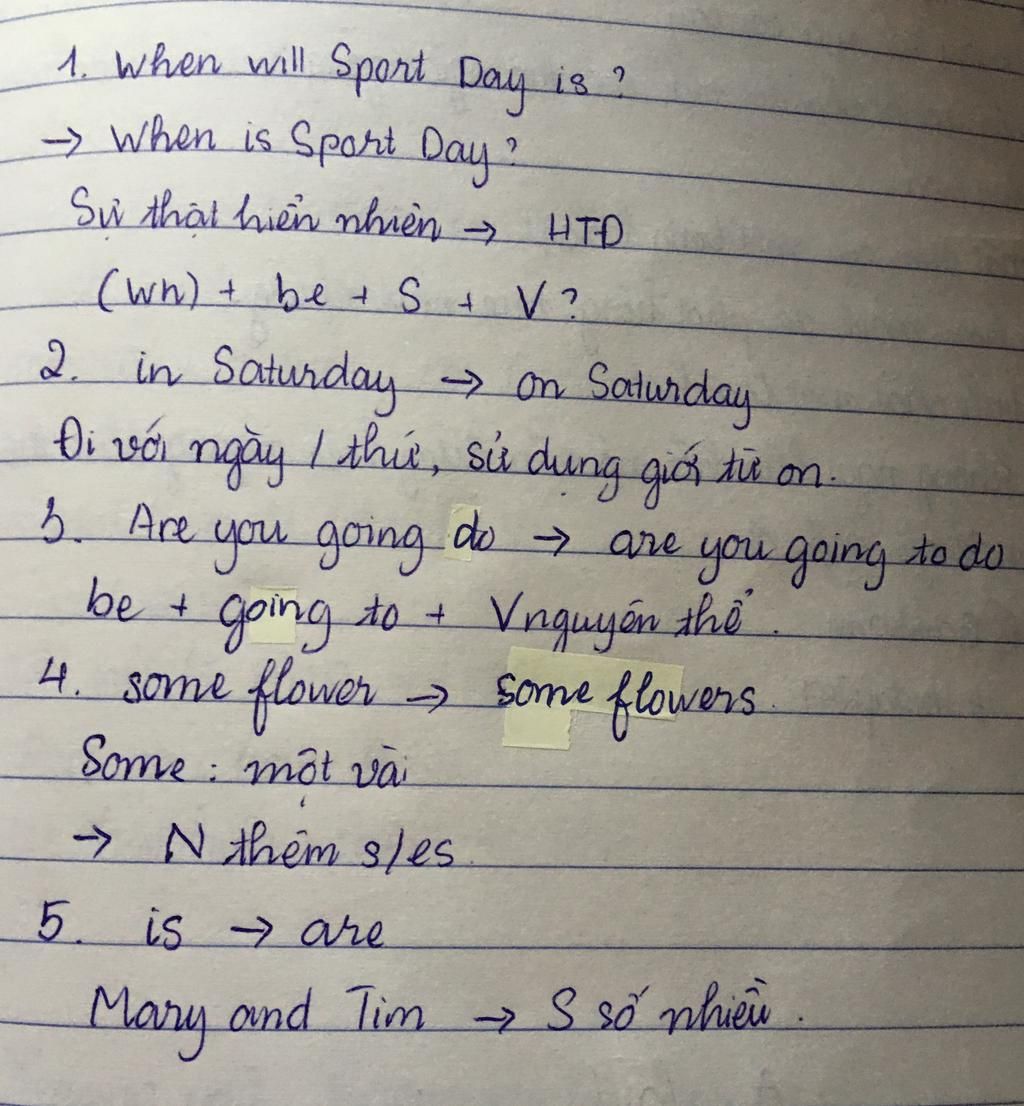 1. When will Sport Day is ?
→ When is Sport Day ?
Sự thật hiển nhiên → HTĐ
(Wh) + be + S + V ?
2. in Saturday → on Saturday
Đi với ngày / thứ, sử dụng giới từ on.
3. Are you going do → are you going to do
be + going to + V nguyên thể.
4. some flower → some flowers.
Some : một vài
→ N thêm s/es.
5. is → are
Mary and Tim → S số nhiều.